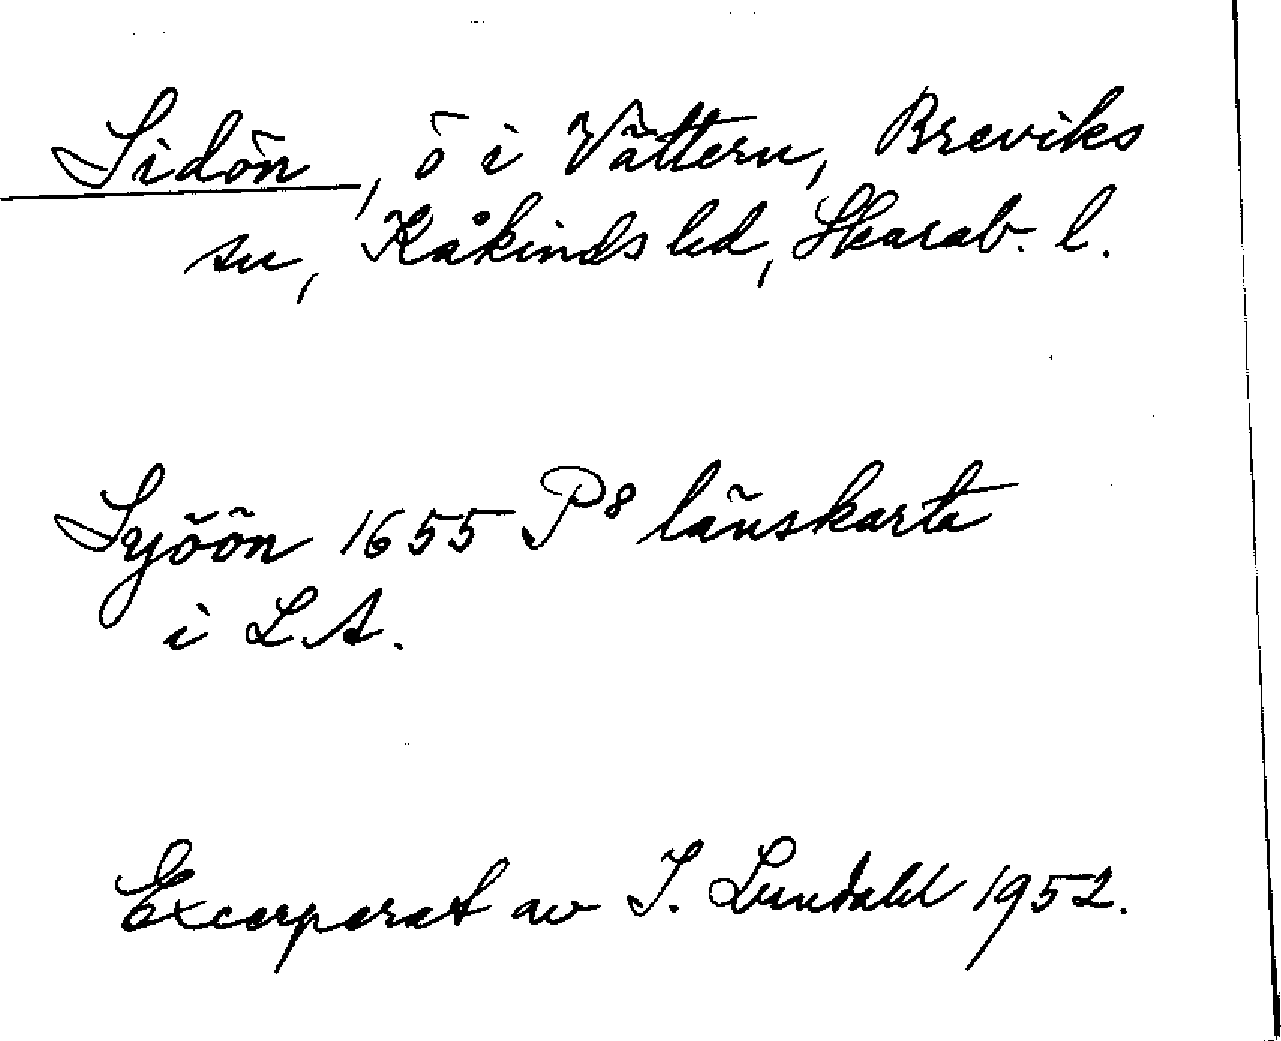 Sidön, ö i Vättern, Breviks
sn, Kåkinds hd, Skarab. l.
Syöön 1655 P8 länskarta
i L.A.
Excerperat av I. Lundahl 1952.